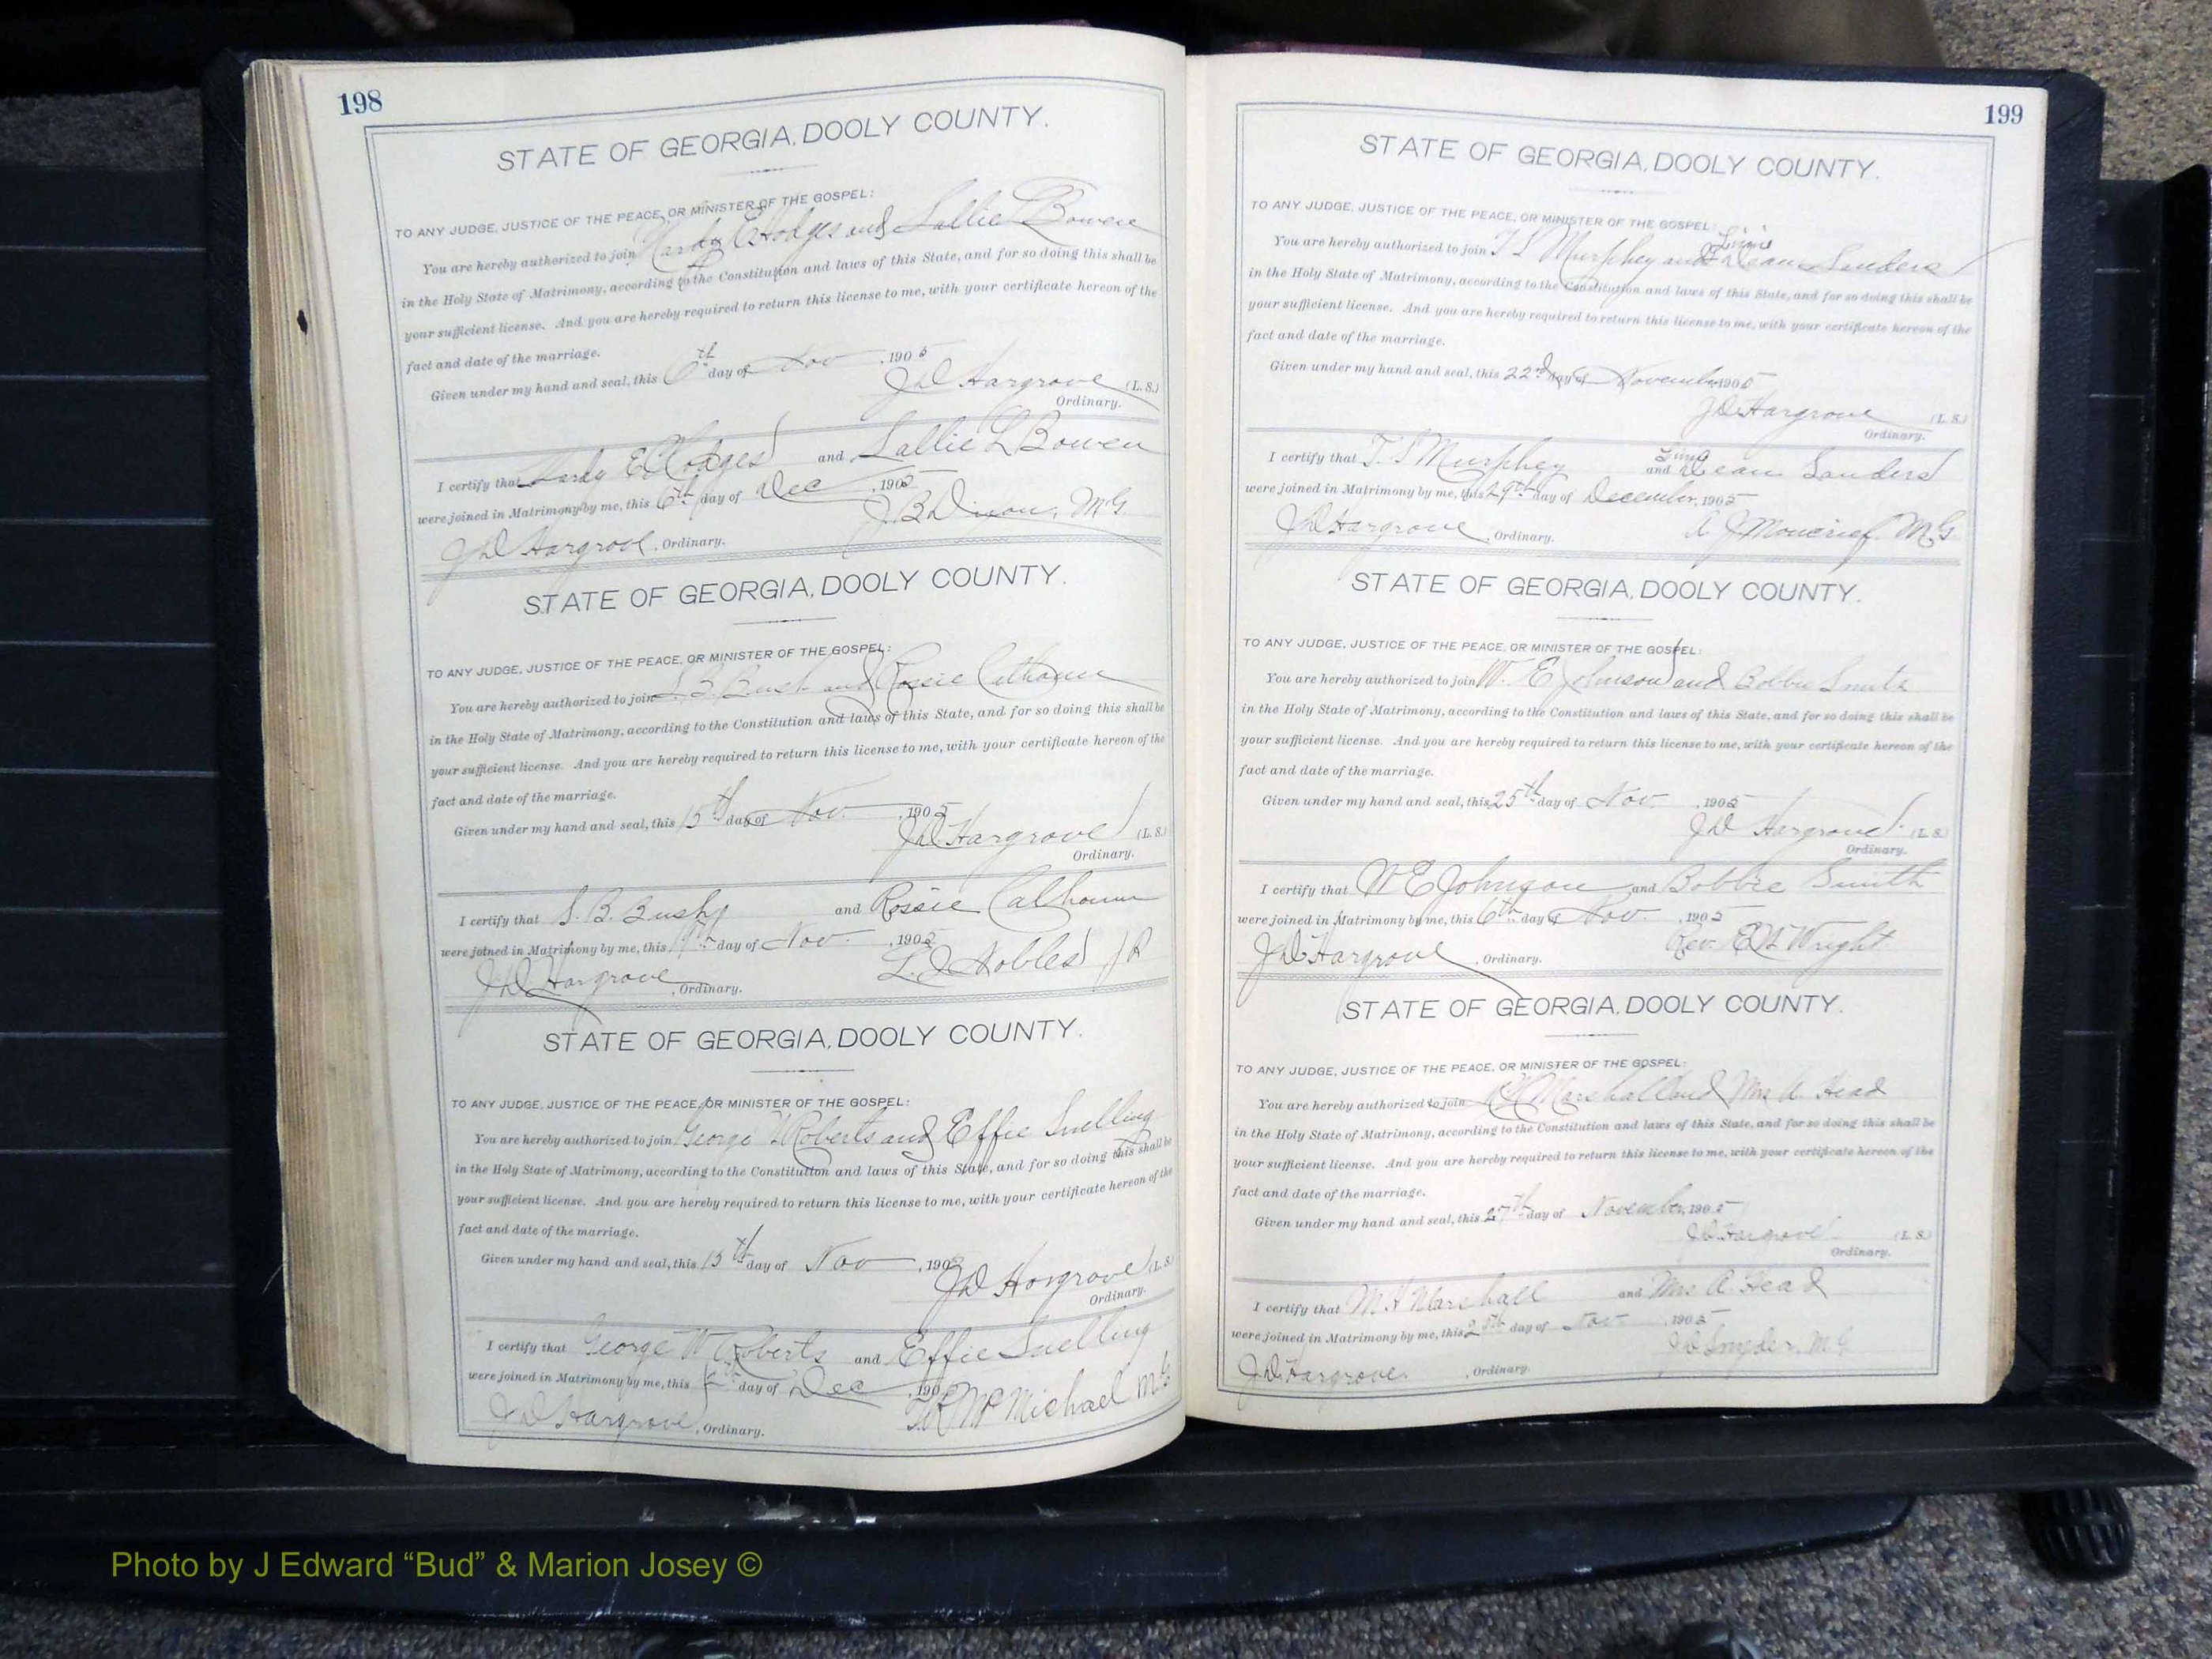 198
STATE OF GEORGIA, DOOLY COUNTY.
TO ANY JUDGE, JUSTICE OF THE PEACE, OR MINISTER OF THE GOSPEL:
You are hereby authorized to join Hardy E Hodges and Lallie L Bowen
in the Holy State of Matrimony, according to the Constitution and laws of this State, and for so doing this shall be
your sufficient license. And you are hereby required to return this license to me, with your certificate hereon of the
fact and date of the marriage.
Given under my hand and seal, this 6th day of Nov , 1905
J D Hargrove (L. S.)
Ordinary.
I certify that Hardy E Hodges and Lallie L Bowen
were joined in Matrimony by me, this 6th day of Dec , 1905
J. B. Dixon, M.G.
J D Hargrove , Ordinary.
STATE OF GEORGIA, DOOLY COUNTY.
TO ANY JUDGE, JUSTICE OF THE PEACE, OR MINISTER OF THE GOSPEL:
You are hereby authorized to join S. B. Bush and Rossie Calhoun
in the Holy State of Matrimony, according to the Constitution and laws of this State, and for so doing this shall be
your sufficient license. And you are hereby required to return this license to me, with your certificate hereon of the
fact and date of the marriage.
Given under my hand and seal, this 15th day of Nov. , 1905
J D Hargrove (L. S.)
Ordinary.
I certify that S. B. Bush and Rossie Calhoun
were joined in Matrimony by me, this day of Nov. , 1905
Nobles
J D Hargrove , Ordinary.
STATE OF GEORGIA, DOOLY COUNTY.
TO ANY JUDGE, JUSTICE OF THE PEACE, OR MINISTER OF THE GOSPEL:
You are hereby authorized to join George W Roberts and Effie Snelling
in the Holy State of Matrimony, according to the Constitution and laws of this State, and for so doing this shall be
your sufficient license. And you are hereby required to return this license to me, with your certificate hereon of the
fact and date of the marriage.
Given under my hand and seal, this 15th day of Nov , 1905
J D Hargrove (L. S.)
Ordinary.
I certify that George W Roberts and Effie Snelling
were joined in Matrimony by me, this day of Dec , 190
McMichael M G
J D Hargrove , Ordinary.
199
STATE OF GEORGIA, DOOLY COUNTY.
TO ANY JUDGE, JUSTICE OF THE PEACE, OR MINISTER OF THE GOSPEL:
You are hereby authorized to join T S Murphey and Dean Sanders
in the Holy State of Matrimony, according to the Constitution and laws of this State, and for so doing this shall be
your sufficient license. And you are hereby required to return this license to me, with your certificate hereon of the
fact and date of the marriage.
Given under my hand and seal, this 22nd day of November 1905
J D Hargrove (L. S.)
Ordinary.
I certify that T. S Murphey and Dean Sanders
were joined in Matrimony by me, this 29th day of December, 1905
A. J. Moncrief M G
J D Hargrove , Ordinary.
STATE OF GEORGIA, DOOLY COUNTY.
TO ANY JUDGE, JUSTICE OF THE PEACE, OR MINISTER OF THE GOSPEL:
You are hereby authorized to join W. E Johnson and Bobbie Smith
in the Holy State of Matrimony, according to the Constitution and laws of this State, and for so doing this shall be
your sufficient license. And you are hereby required to return this license to me, with your certificate hereon of the
fact and date of the marriage.
Given under my hand and seal, this 25th day of Nov. , 1905
J D Hargrove (L. S.)
Ordinary.
I certify that W E Johnson and Bobbie Smith
were joined in Matrimony by me, this 6th day of Nov. , 1905
Rev. Wright
J D Hargrove , Ordinary.
STATE OF GEORGIA, DOOLY COUNTY.
TO ANY JUDGE, JUSTICE OF THE PEACE, OR MINISTER OF THE GOSPEL:
You are hereby authorized to join Marshall and Mrs A. Head
in the Holy State of Matrimony, according to the Constitution and laws of this State, and for so doing this shall be
your sufficient license. And you are hereby required to return this license to me, with your certificate hereon of the
fact and date of the marriage.
Given under my hand and seal, this 27th day of November, 1905
J D Hargrove (L. S.)
Ordinary.
I certify that Marshall and Mrs A. Head
were joined in Matrimony by me, this day of Nov , 1905
J D Snyder, M G
J. D. Hargrove. , Ordinary.
Photo by J Edward “Bud” & Marion Josey ©